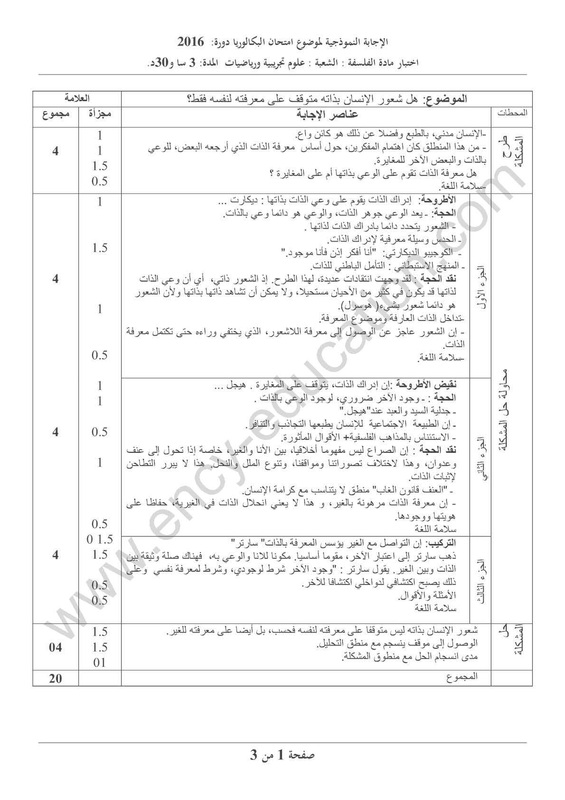 الإجابة النموذجية لموضوع امتحان البكالوريا دورة: 2016
اختبار مادة الفلسفة : الشعبة : علوم تجريبية ورياضيات المدة: 3 سا و30د.
المحطات
الموضوع: هل شعور الإنسان بذاته متوقف على معرفته لنفسه فقط؟
العلامة
عناصر الإجابة
مجزأة
مجموع
طرح المشكلة
-الإنسان مدني، بالطبع وفضلا عن ذلك هو كائن واع.
1
- من هذا المنطلق كان اهتمام المفكرين، حول أساس معرفة الذات الذي أرجعه البعض، للوعي
1
بالذات والبعض الآخر للمغايرة.
4
هل معرفة الذات تقوم على الوعي بذاتها أم على المغايرة ؟
1.5
-سلامة اللغة.
0.5
محاولة حل المشكلة
الجزء الأول
الأطروحة: إدراك الذات يقوم على وعي الذات بذاتها : ديكارت ...
1
الحجة: - يعد الوعي جوهر الذات، والوعي هو دائما وعي بالذات.
- الشعور يتحدد دائما بادراك الذات لذاتها .
- الحدس وسيلة معرفية لإدراك الذات.
- الكوجيتو الديكارتي: "أنا أفكر إذن فأنا موجود."
1.5
- المنهج الاستبطاني : التأمل الباطني للذات.
نقد الحجة : لقد وجهت انتقادات عديدة، لهذا الطرح. إذ الشعور ذاتي، أي أن وعي الذات
4
لذاتها قد يكون في كثير من الأحيان مستحيلا، ولا يمكن أن تشاهد ذاتها بذاتها ولأن الشعور
هو دائما شعور بشيء( هوسرل).
1
-تداخل الذات العارفة وموضوع المعرفة.
- إن الشعور عاجز عن الوصول إلى معرفة اللاشعور، الذي يختفي وراءه حتى تكتمل معرفة
الذات.
-سلامة اللغة.
0.5
الجزء الثاني
نقيض الأطروحة :إن إدراك الذات، يتوقف على المغايرة . هيجل ...
1
الحجة : - وجود الآخر ضروري، لوجود الوعي بالذات .
1
- جدلية السيد والعبد عند"هيجل."
- إن الطبيعة الاجتماعية للإنسان يطبعها التجاذب والتنافر.
- الاستئناس بالمذاهب الفلسفية+ الأقوال المأثورة.
0.5
4
نقد الحجة : إن الصراع ليس مفهوما أخلاقيا، بين الأنا والغير، خاصة إذا تحول إلى عنف
وعدوان، وهذا لاختلاف تصوراتنا ومواقفنا، وتنوع الملل والنحل, هذا لا يبرر التطاحن
1
لإثبات الذات.
- "العنف قانون الغاب" منطق لا يتناسب مع كرامة الإنسان.
- إن معرفة الذات مرهونة بالغير، و هذا لا يعني انحلال الذات في الغيرية، حفاظا على
هويتها ووجودها.
سلامة اللغة
0.5
الجزء الثالث
التركيب: إن التواصل مع الغير يؤسس المعرفة بالذات" سارتر"
0 1.5
ذهب سارتر إلى اعتبار الآخر، مقوما أساسيا. مكونا للانا والوعي به، فهناك صلة وثيقة بين
1.5
4
الذات وبين الغير. يقول سارتر : "وجود الآخر شرط لوجودي، وشرط لمعرفة نفسي وعلى
ذلك يصبح اكتشافي لدواخلي اكتشافا للآخر.
0.5
الأمثلة والأقوال.
0.5
سلامة اللغة
حل المشكلة
شعور الإنسان بذاته ليس متوقفا على معرفته لنفسه فحسب، بل أيضا على معرفته للغير.
1.5
الوصول إلى موقف ينسجم مع منطق التحليل.
1.5
04
مدى انسجام الحل مع منطوق المشكلة.
01
المجموع
20
صفحة 1 من 3
www.ency-education.com